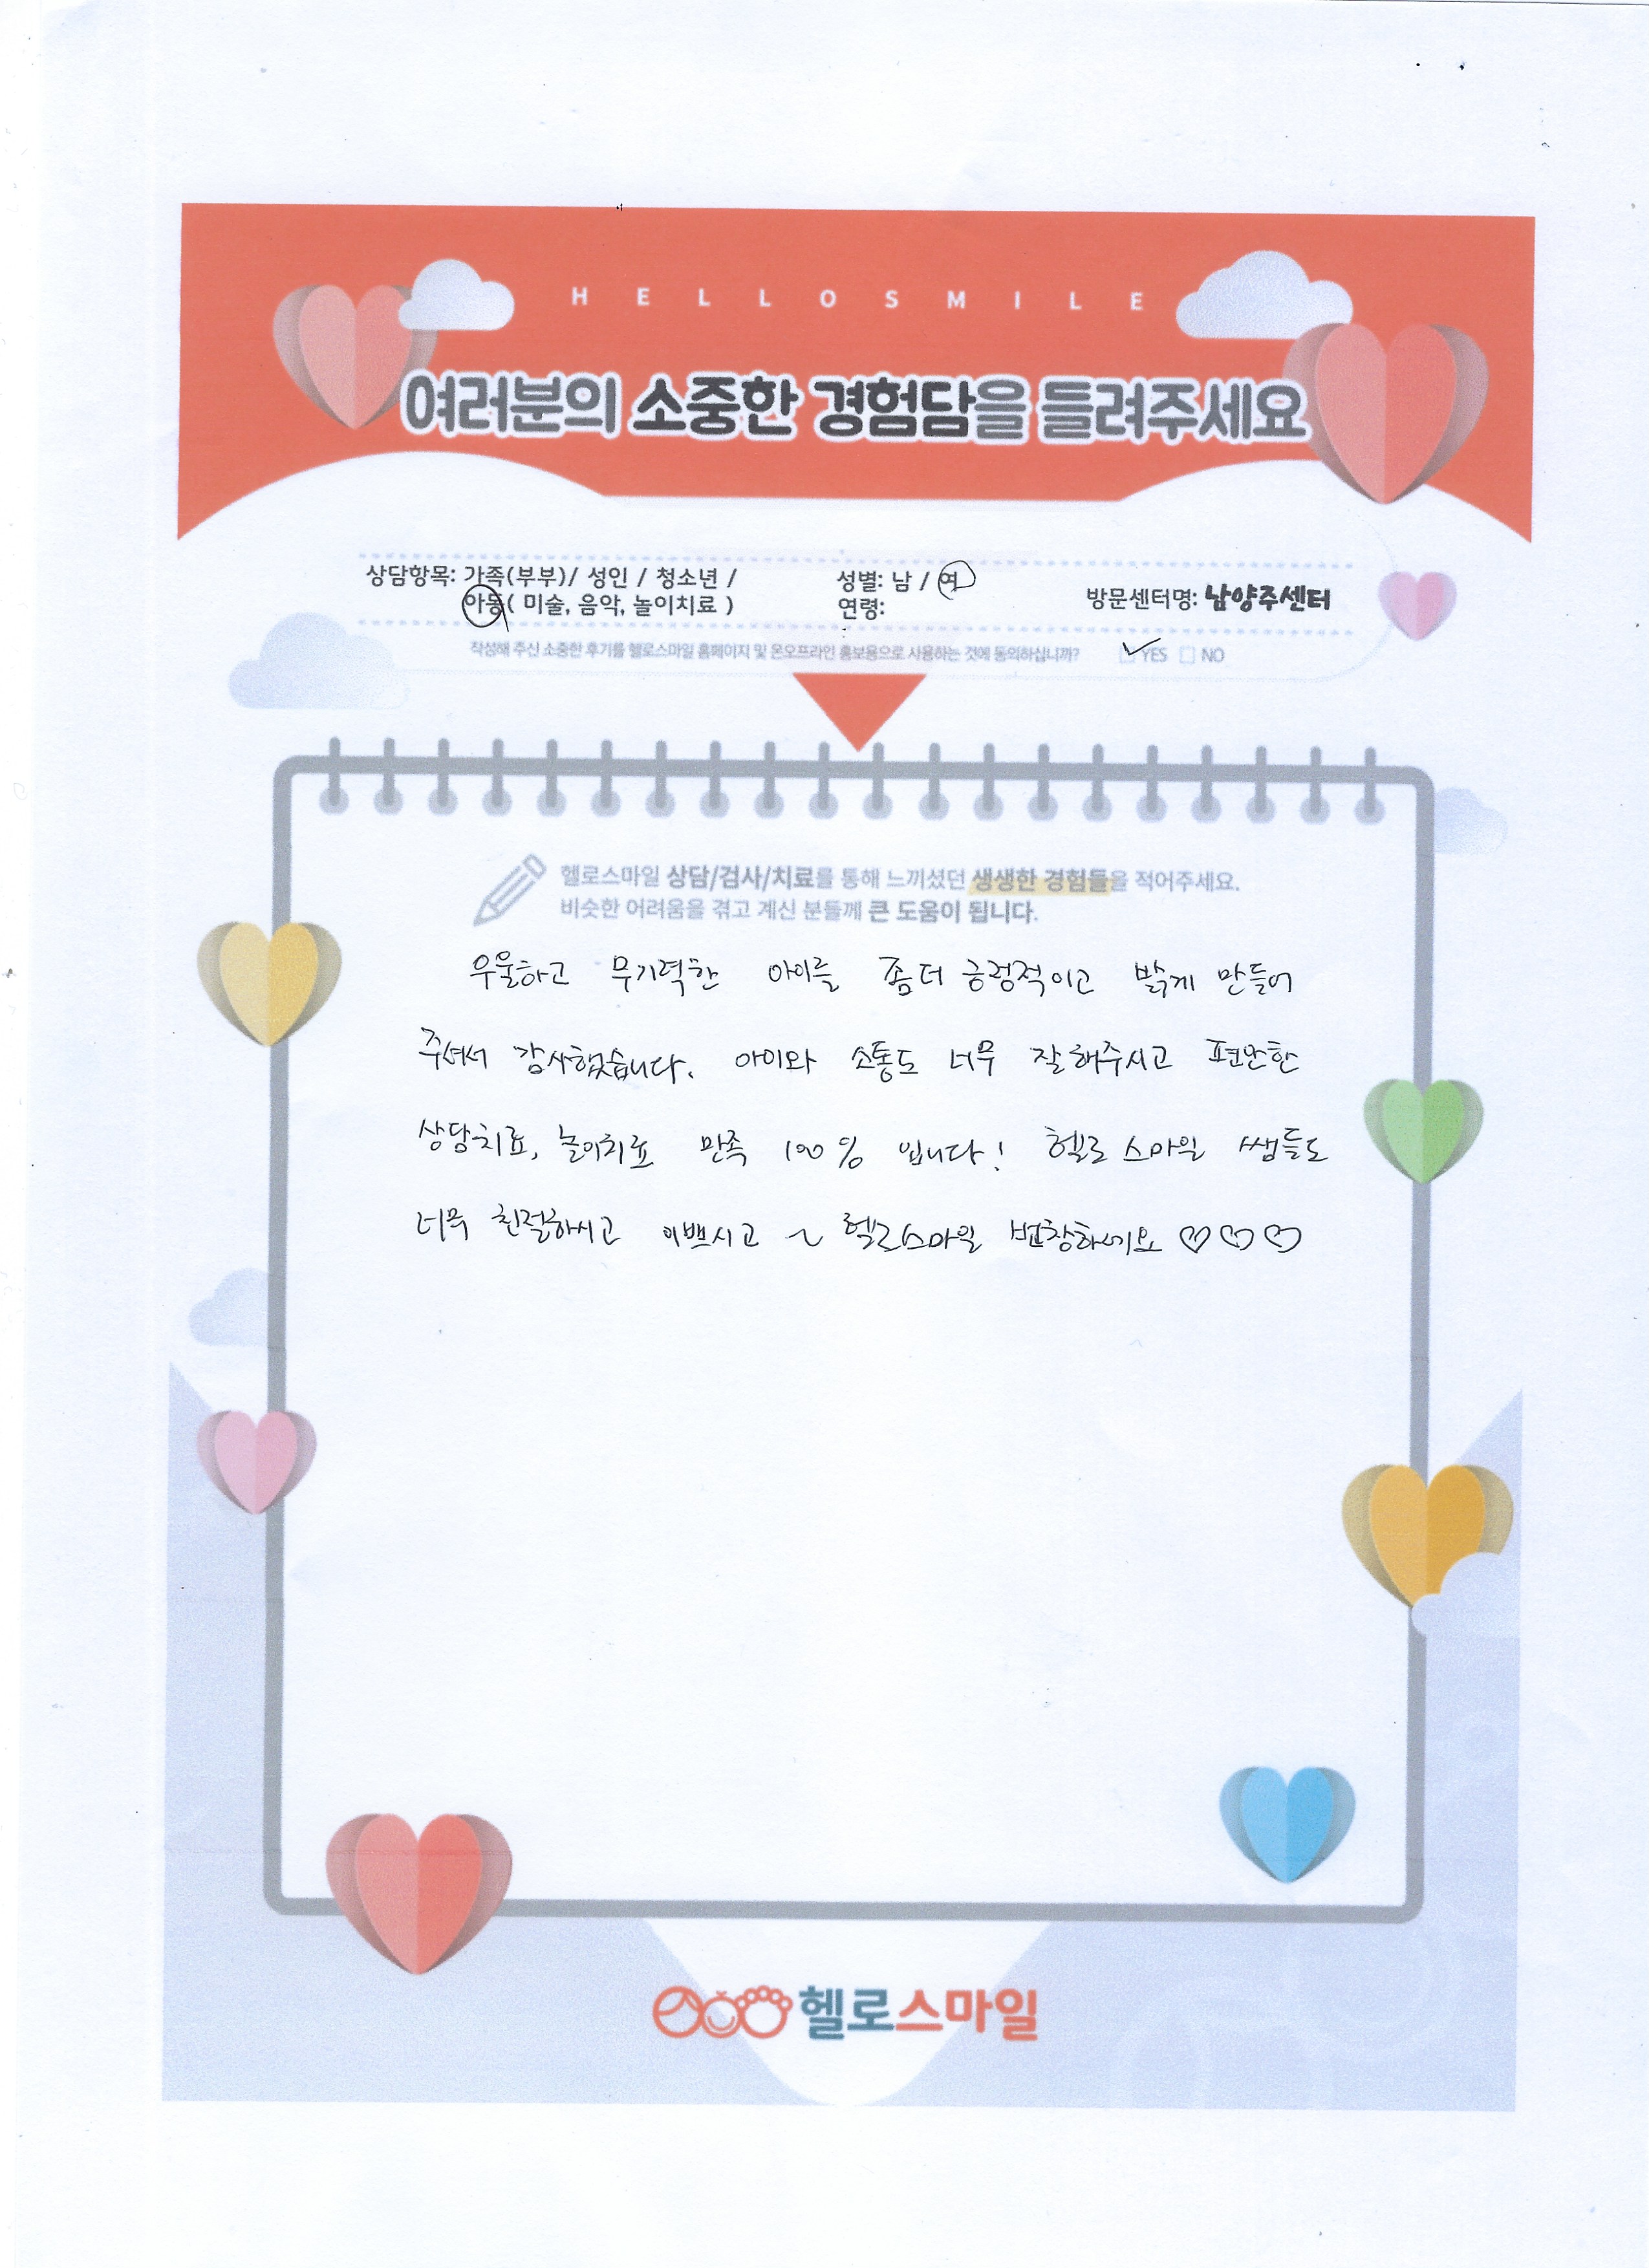 HELLOSMILE
여러분의 소중한 경험담을 들려주세요
상담항목: 가족(부부)/ 성인 / 청소년 /
아동( 미술, 음악, 놀이치료 )
성별: 남 / 여
연령:
방문센터명: 남양주센터
작성해 주신 소중한 후기를 헬로스마일 홈페이지 및 온오프라인 홍보용으로 사용하는 것에 동의하십니까? YES NO
헬로스마일 상담/검사/치료를 통해 느끼셨던 생생한 경험들을 적어주세요.
비슷한 어려움을 겪고 계신 분들께 큰 도움이 됩니다.
우울하고 무기력한 아이를 좀더 긍정적이고 밝게 만들어
주셔서 감사했습니다. 아이와 소통도 너무 잘해주시고 편안한
상담치료, 놀이치료 만족 100% 입니다! 헬로스마일 쌤들도
너무 친절하시고 이쁘시고 ~ 헬로스마일 번창하세요 ♡♡♡
헬로스마일